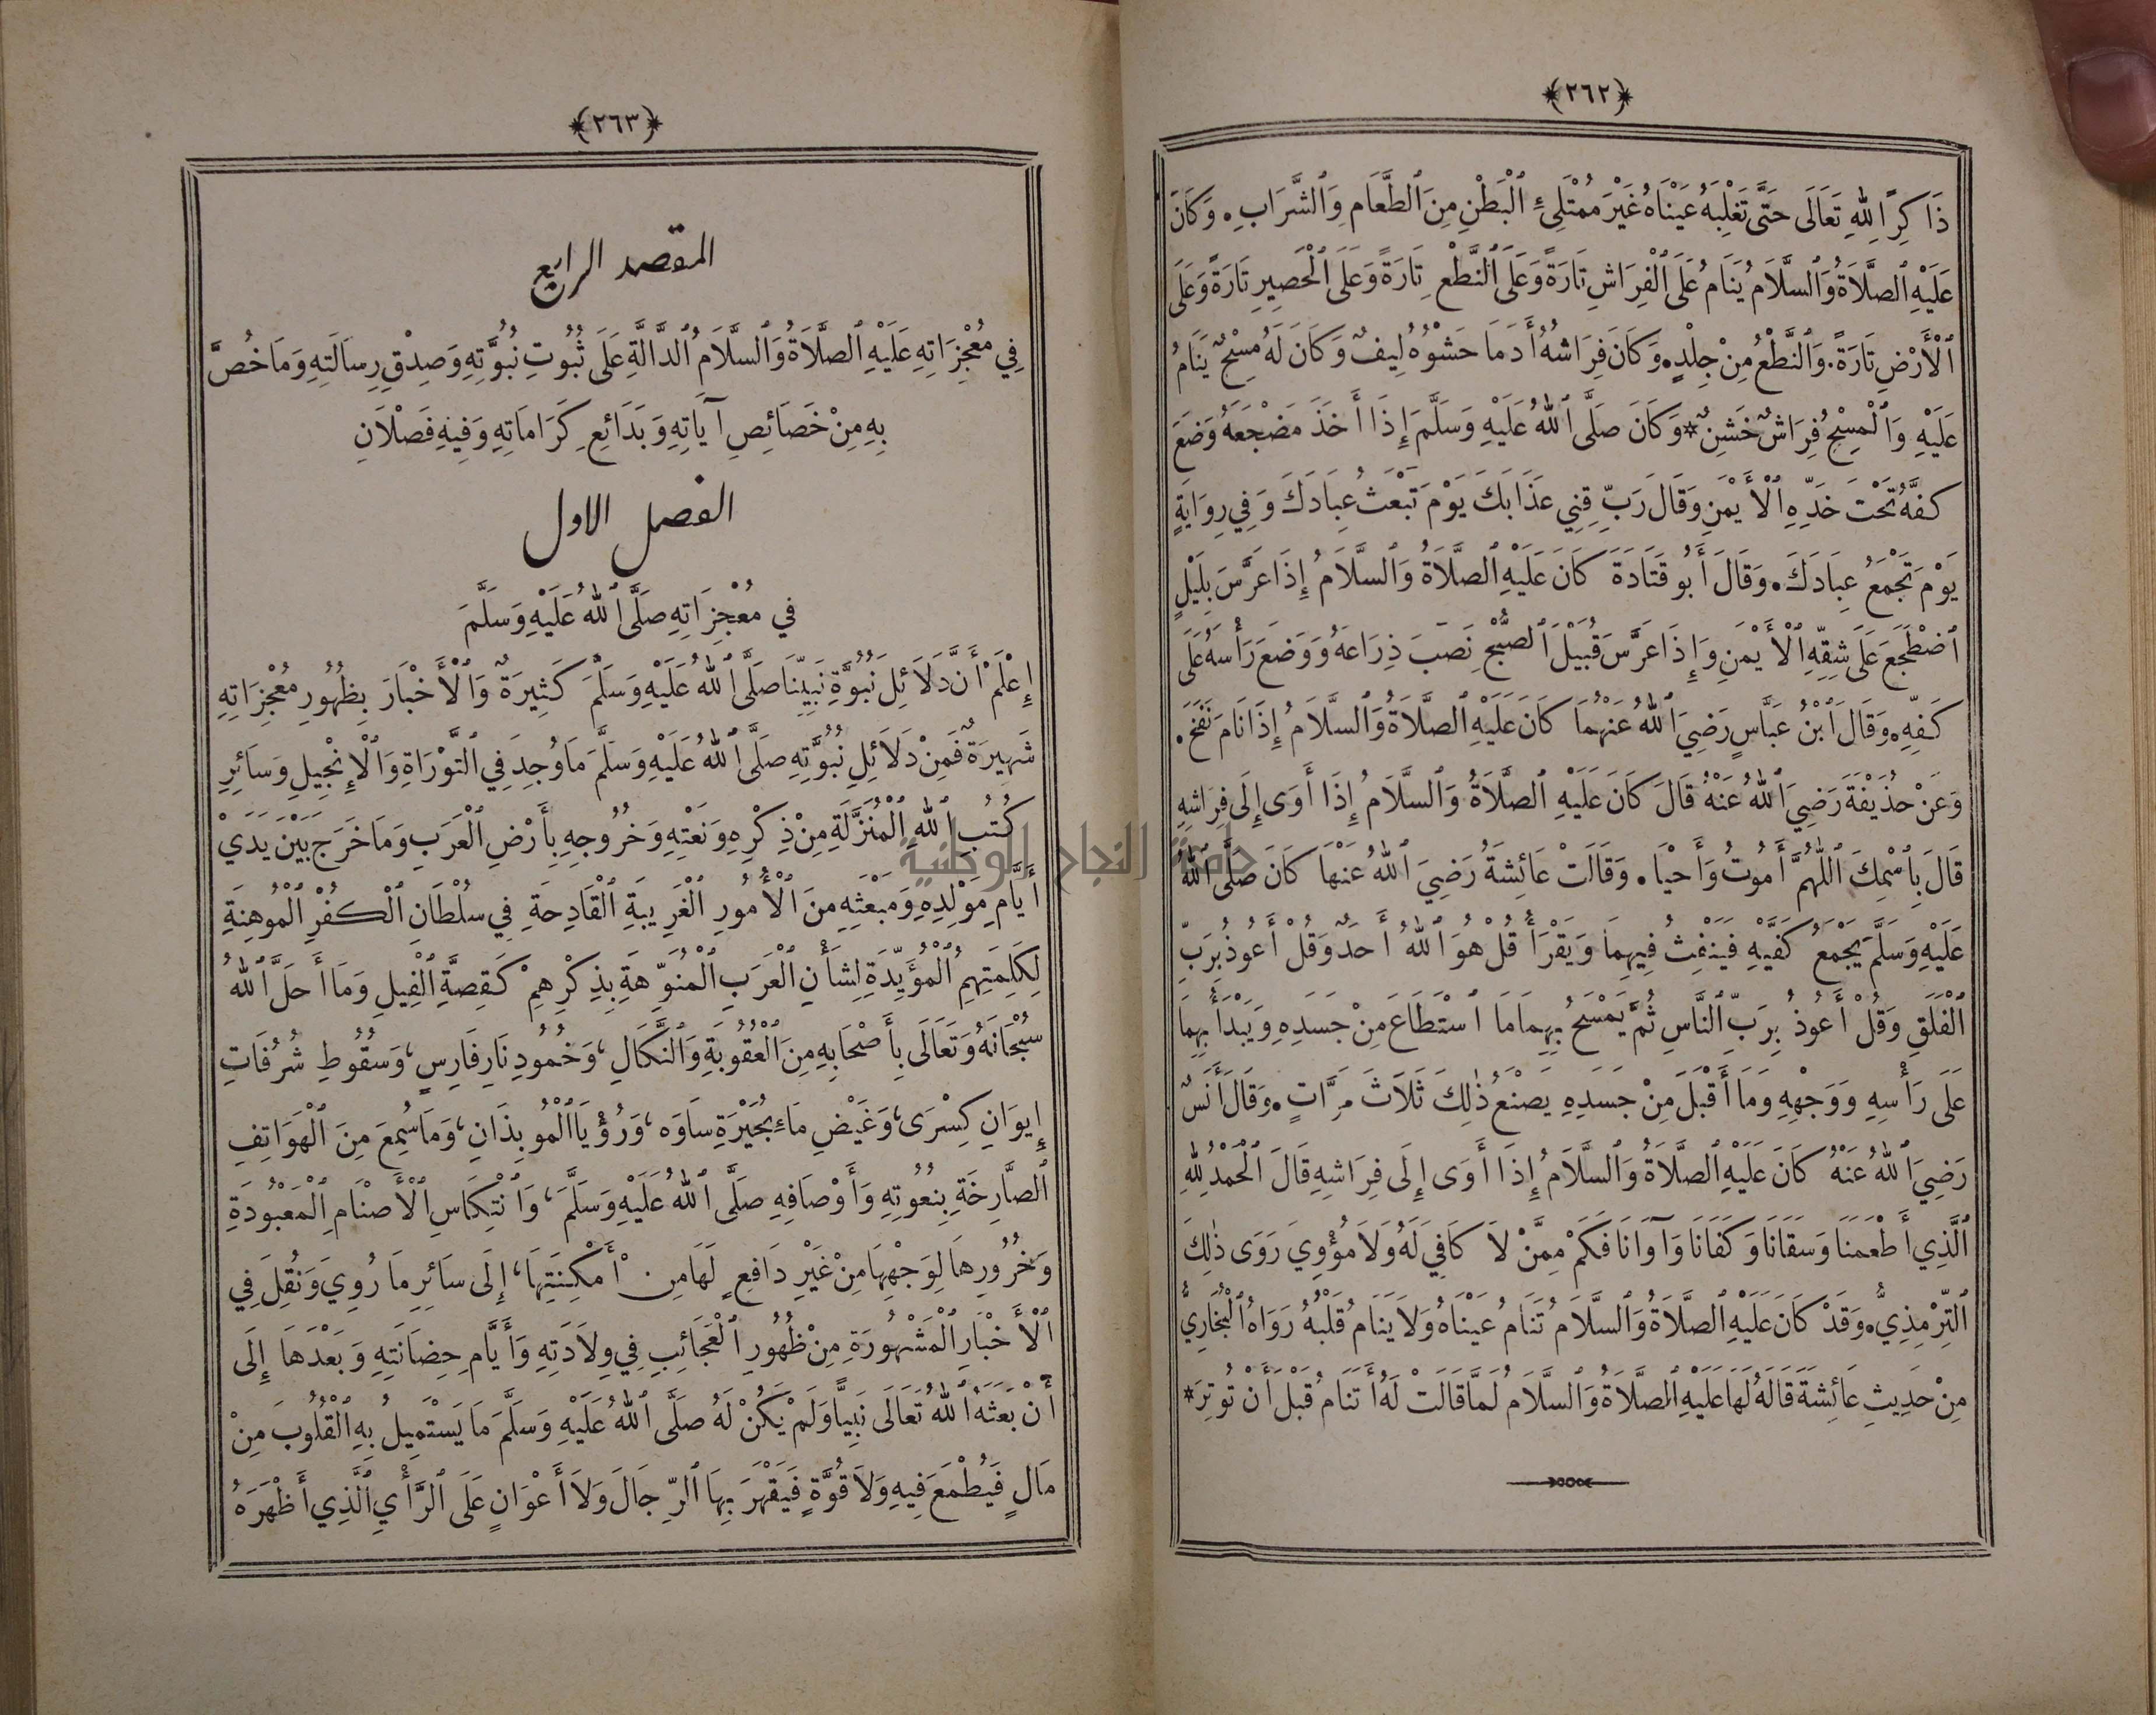 ﴿٢٦٢﴾
ذَاكِرًا لِلهِ تَعَالَى حَتَّى تَغْلِبَهُ عَيْنَاهُ غَيْرَ مُمْتَلِئِ ٱلْبَطْنِ مِنَ ٱلطَّعَامِ وَٱلشَّرَابِ . وَكَانَ
عَلَيْهِ ٱلصَّلَاةُ وَٱلسَّلَامُ يَنَامُ عَلَى ٱلْفِرَاشِ تَارَةً وَعَلَى ٱلنَّطْعِ تَارَةً وَعَلَى ٱلْحَصِيرِ تَارَةً وَعَلَى
ٱلْأَرْضِ تَارَةً . وَٱلنَّطْعُ مِنْ جِلْدٍ . وَكَانَ فِرَاشُهُ أَدَمًا حَشْوُهُ لِيفٌ وَكَانَ لَهُ مِسْحٌ يَنَامُ
عَلَيْهِ وَٱلْمِسْحُ فِرَاشٌ خَشِنٌ * وَكَانَ صَلَّى ٱللهُ عَلَيْهِ وَسَلَّمَ إِذَا أَخَذَ مَضْجَعَهُ وَضَعَ
كَفَّهُ تَحْتَ خَدِّهِ ٱلْأَيْمَنِ وَقَالَ رَبِّ قِنِي عَذَابَكَ يَوْمَ تَبْعَثُ عِبَادَكَ وَفِي رِوَايَةٍ
يَوْمَ تَجْمَعُ عِبَادَكَ . وَقَالَ أَبُو قَتَادَةَ كَانَ عَلَيْهِ ٱلصَّلَاةُ وَٱلسَّلَامُ إِذَا عَرَّسَ بِلَيْلٍ
ٱضْطَجَعَ عَلَى شِقِّهِ ٱلْأَيْمَنِ وَإِذَا عَرَّسَ قُبَيْلَ ٱلصُّبْحِ نَصَبَ ذِرَاعَهُ وَوَضَعَ رَأْسَهُ عَلَى
كَفِّهِ . وَقَالَ ٱبْنُ عَبَّاسٍ رَضِيَ ٱللهُ عَنْهُمَا كَانَ عَلَيْهِ ٱلصَّلَاةُ وَٱلسَّلَامُ إِذَا نَامَ نَفَخَ .
وَعَنْ حُذَيْفَةَ رَضِيَ ٱللهُ عَنْهُ قَالَ كَانَ عَلَيْهِ ٱلصَّلَاةُ وَٱلسَّلَامُ إِذَا أَوَى إِلَى فِرَاشِهِ
قَالَ بِٱسْمِكَ ٱللّٰهُمَّ أَمُوتُ وَأَحْيَا . وَقَالَتْ عَائِشَةُ رَضِيَ ٱللهُ عَنْهَا كَانَ صَلَّى ٱللهُ
عَلَيْهِ وَسَلَّمَ يَجْمَعُ كَفَّيْهِ فَيَنْفِثُ فِيهِمَا وَيَقْرَأُ قُلْ هُوَ ٱللهُ أَحَدٌ وَقُلْ أَعُوذُ بِرَبِّ
ٱلْفَلَقِ وَقُلْ أَعُوذُ بِرَبِّ ٱلنَّاسِ ثُمَّ يَمْسَحُ بِهِمَا مَا ٱسْتَطَاعَ مِنْ جَسَدِهِ وَيَبْدَأُ بِهِمَا
عَلَى رَأْسِهِ وَوَجْهِهِ وَمَا أَقْبَلَ مِنْ جَسَدِهِ يَصْنَعُ ذٰلِكَ ثَلَاثَ مَرَّاتٍ . وَقَالَ أَنَسٌ
رَضِيَ ٱللهُ عَنْهُ كَانَ عَلَيْهِ ٱلصَّلَاةُ وَٱلسَّلَامُ إِذَا أَوَى إِلَى فِرَاشِهِ قَالَ ٱلْحَمْدُ لِلهِ
ٱلَّذِي أَطْعَمَنَا وَسَقَانَا وَكَفَانَا وَآوَانَا فَكَمْ مِمَّنْ لَا كَافِيَ لَهُ وَلَا مُؤْوِيَ رَوَى ذٰلِكَ
ٱلتِّرْمِذِيُّ . وَقَدْ كَانَ عَلَيْهِ ٱلصَّلَاةُ وَٱلسَّلَامُ تَنَامُ عَيْنَاهُ وَلَا يَنَامُ قَلْبُهُ رَوَاهُ ٱلْبُخَارِيُّ
مِنْ حَدِيثِ عَائِشَةَ قَالَهُ لَهَا عَلَيْهِ ٱلصَّلَاةُ وَٱلسَّلَامُ لَمَّا قَالَتْ لَهُ أَتَنَامُ قَبْلَ أَنْ تُوتِرَ *
﴿٢٦٣﴾
المقصد الرابع
فِي مُعْجِزَاتِهِ عَلَيْهِ ٱلصَّلَاةُ وَٱلسَّلَامُ ٱلدَّالَّةِ عَلَى ثُبُوتِ نُبُوَّتِهِ وَصِدْقِ رِسَالَتِهِ وَمَا خُصَّ
بِهِ مِنْ خَصَائِصِ آيَاتِهِ وَبَدَائِعِ كَرَامَاتِهِ وَفِيهِ فَصْلَانِ
الفصل الاول
فِي مُعْجِزَاتِهِ صَلَّى ٱللهُ عَلَيْهِ وَسَلَّمَ
إِعْلَمْ أَنَّ دَلَائِلَ نُبُوَّةِ نَبِيِّنَا صَلَّى ٱللهُ عَلَيْهِ وَسَلَّمَ كَثِيرَةٌ وَٱلْأَخْبَارَ بِظُهُورِ مُعْجِزَاتِهِ
شَهِيرَةٌ فَمِنْ دَلَائِلِ نُبُوَّتِهِ صَلَّى ٱللهُ عَلَيْهِ وَسَلَّمَ مَا وُجِدَ فِي ٱلتَّوْرَاةِ وَٱلْإِنْجِيلِ وَسَائِرِ
كُتُبِ ٱللهِ ٱلْمُنَزَّلَةِ مِنْ ذِكْرِهِ وَنَعْتِهِ وَخُرُوجِهِ بِأَرْضِ ٱلْعَرَبِ وَمَا خَرَجَ بَيْنَ يَدَيْ
أَيَّامِ مَوْلِدِهِ وَمَبْعَثِهِ مِنَ ٱلْأُمُورِ ٱلْغَرِيبَةِ ٱلْقَادِحَةِ فِي سُلْطَانِ ٱلْكُفْرِ ٱلْمُوهِنَةِ
لِكَلِمَتِهِمِ ٱلْمُؤَيِّدَةِ لِشَأْنِ ٱلْعَرَبِ ٱلْمُنَوِّهَةِ بِذِكْرِهِمْ كَقِصَّةِ ٱلْفِيلِ وَمَا أَحَلَّ ٱللهُ
سُبْحَانَهُ وَتَعَالَى بِأَصْحَابِهِ مِنَ ٱلْعُقُوبَةِ وَٱلنَّكَالِ ، وَخُمُودِ نَارِ فَارِسٍ ، وَسُقُوطِ شُرُفَاتِ
إِيوَانِ كِسْرَى ، وَغَيْضِ مَاءِ بُحَيْرَةِ سَاوَه ، وَرُؤْيَا ٱلْمُوبِذَانِ ، وَمَا سُمِعَ مِنَ ٱلْهَوَاتِفِ
ٱلصَّارِخَةِ بِنُعُوتِهِ وَأَوْصَافِهِ صَلَّى ٱللهُ عَلَيْهِ وَسَلَّمَ ، وَٱنْتِكَاسِ ٱلْأَصْنَامِ ٱلْمَعْبُودَةِ
وَخُرُورِهَا لِوَجْهِهَا مِنْ غَيْرِ دَافِعٍ لَهَا مِنْ أَمْكِنَتِهَا ، إِلَى سَائِرِ مَا رُوِيَ وَنُقِلَ فِي
ٱلْأَخْبَارِ ٱلْمَشْهُورَةِ مِنْ ظُهُورِ ٱلْعَجَائِبِ فِي وِلَادَتِهِ وَأَيَّامِ حِضَانَتِهِ وَبَعْدَهَا إِلَى
أَنْ بَعَثَهُ ٱللهُ تَعَالَى نَبِيًّا وَلَمْ يَكُنْ لَهُ صَلَّى ٱللهُ عَلَيْهِ وَسَلَّمَ مَا يَسْتَمِيلُ بِهِ ٱلْقُلُوبَ مِنْ
مَالٍ فَيُطْمَعَ فِيهِ وَلَا قُوَّةٍ فَيَقْهَرَ بِهَا ٱلرِّجَالَ وَلَا أَعْوَانٍ عَلَى ٱلرَّأْيِ ٱلَّذِي أَظْهَرَهُ
جامعة النجاح الوطنية